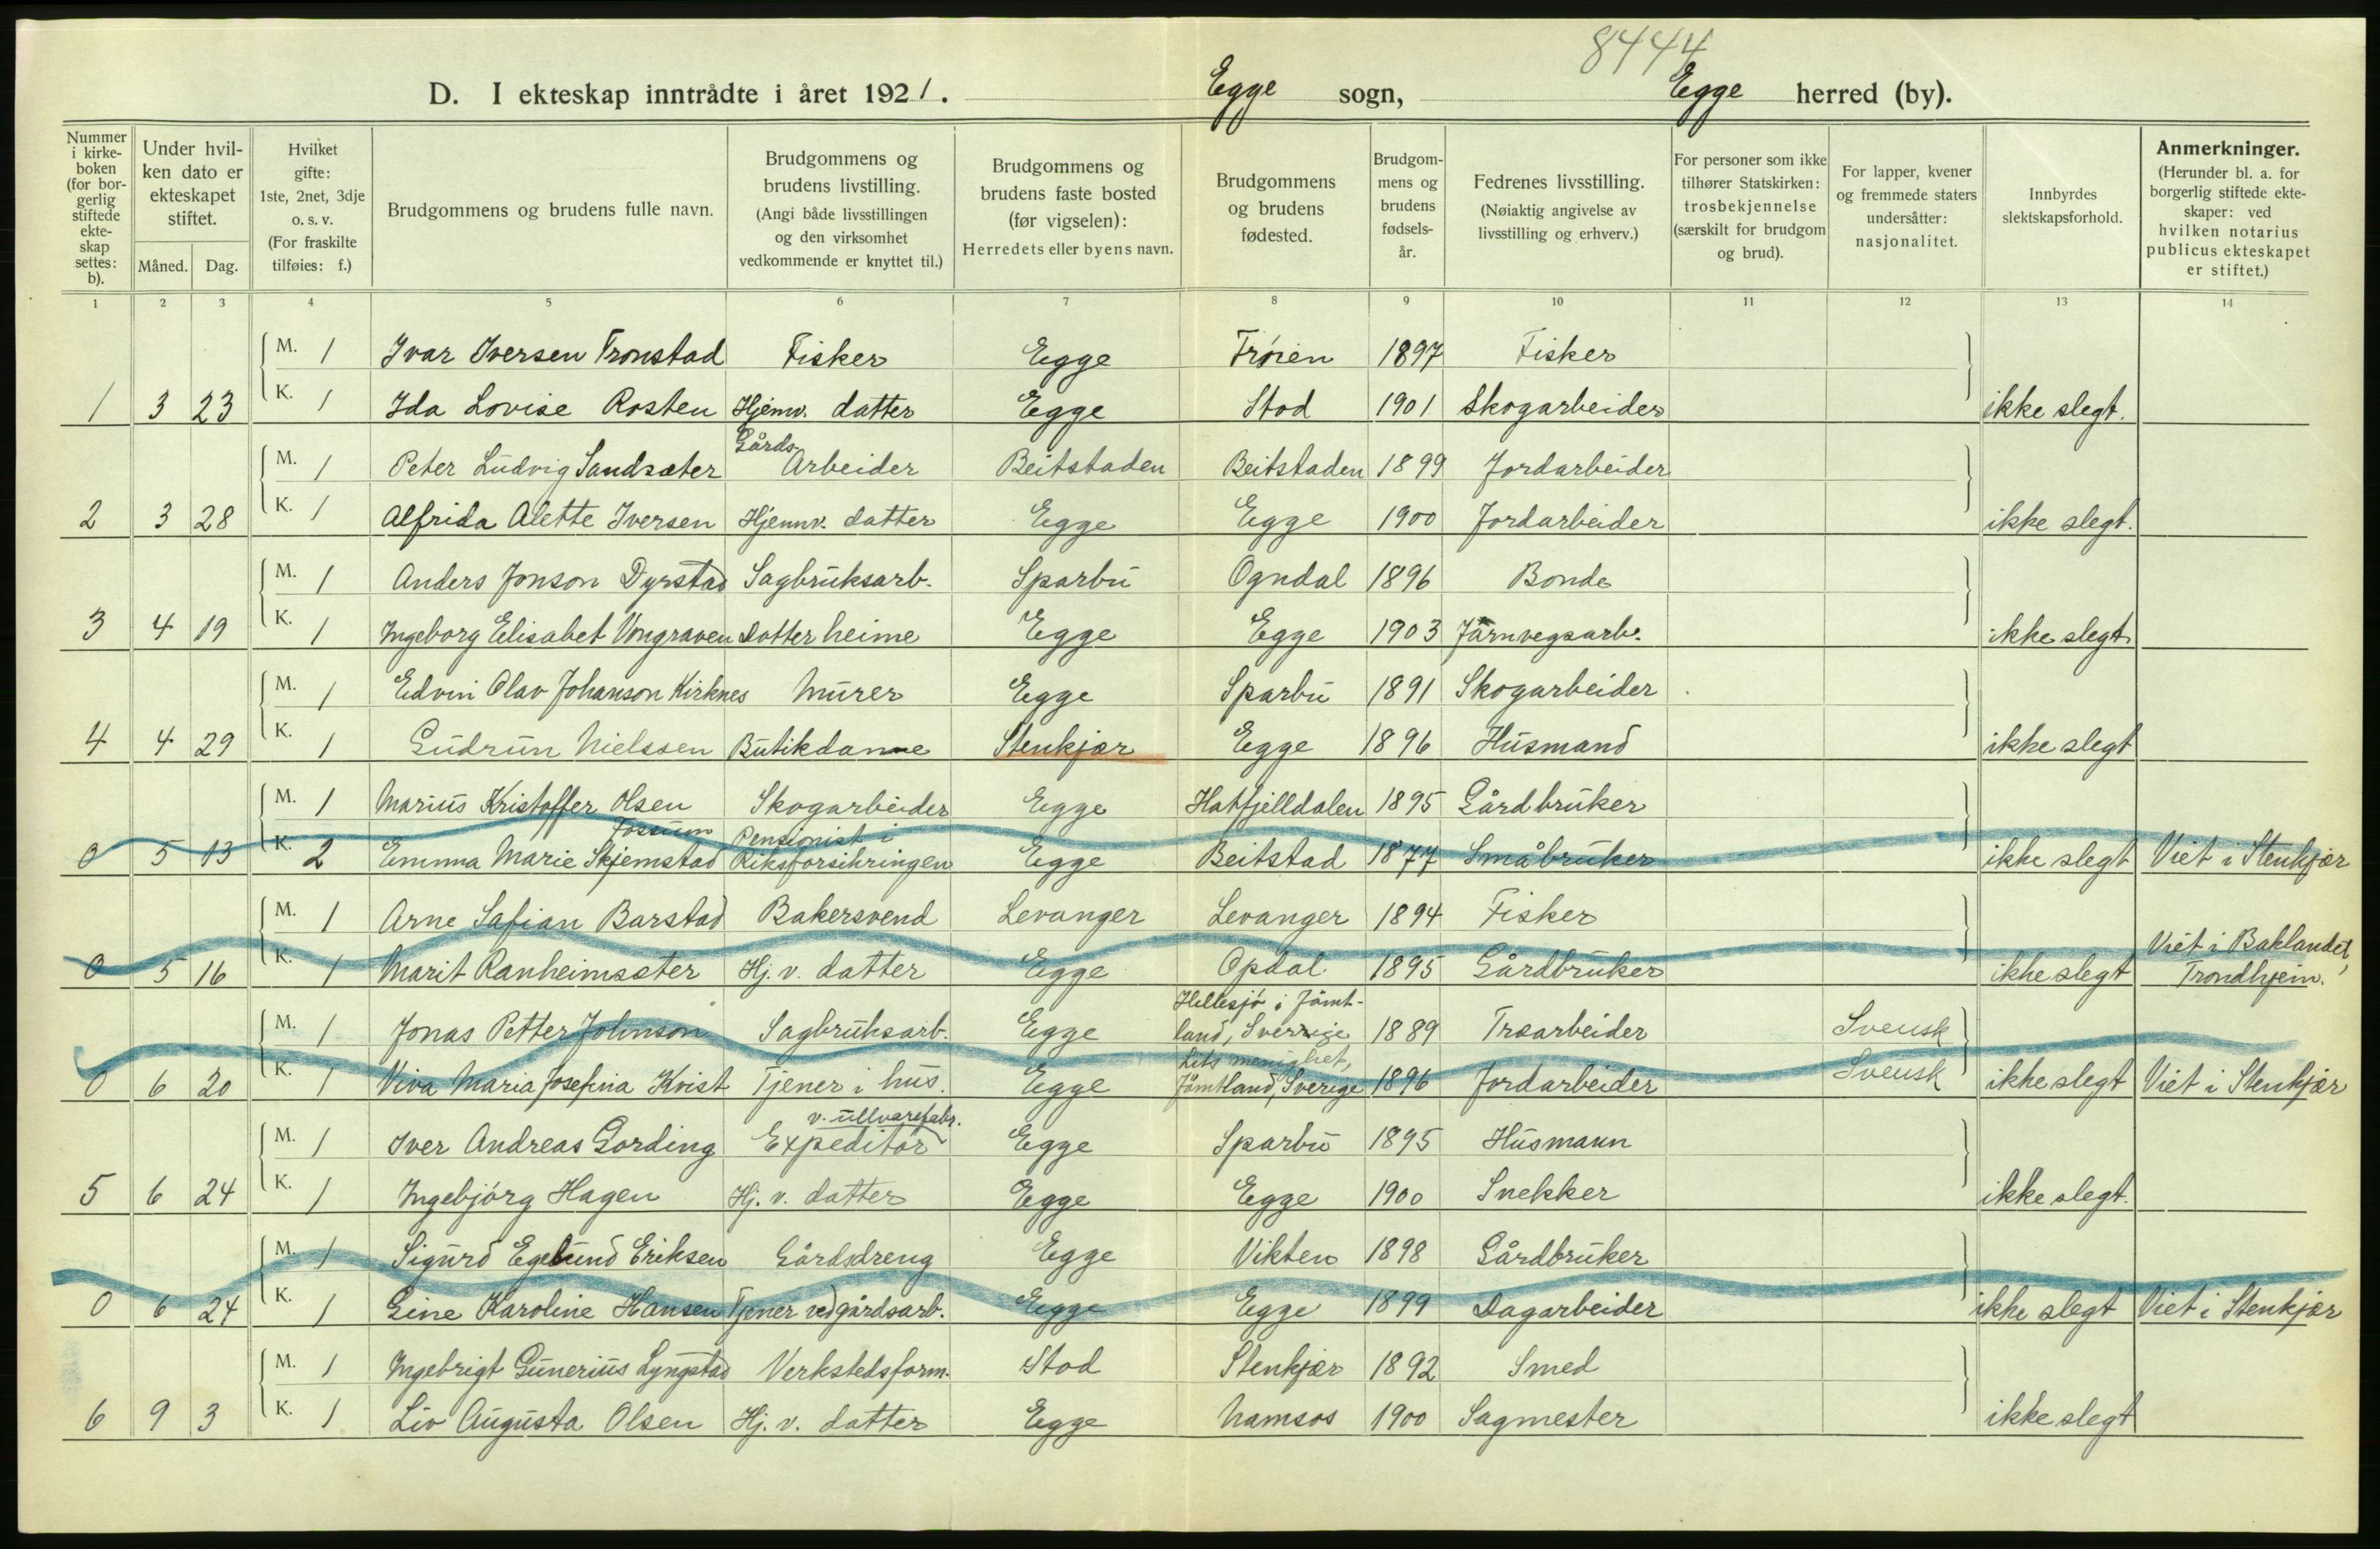 8444
D. I ekteskap inntrådte i året 1921. Egge sogn, Egge herred (by).
Nummer i kirkeboken (for borgerlig stiftede ekteskap settes: b).
Under hvilken dato er ekteskapet stiftet.
Måned. Dag.
Hvilket gifte: 1ste, 2net, 3dje o. s. v. (For fraskilte tilføies: f.)
Brudgommens og brudens fulle navn.
Brudgommens og brudens livstilling. (Angi både livsstillingen og den virksomhet vedkommende er knyttet til.)
Brudgommens og brudens faste bosted (før vigselen): Herredets eller byens navn.
Brudgommens og brudens fødested.
Brudgommens og brudens fødselsår.
Fedrenes livsstilling. (Nøiaktig angivelse av livsstilling og erhverv.)
For personer som ikke tilhører Statskirken: trosbekjennelse (særskilt for brudgom og brud).
For lapper, kvener og fremmede staters undersåtter: nasjonalitet.
Innbyrdes slektskapsforhold.
Anmerkninger. (Herunder bl. a. for borgerlig stiftede ekteskaper: ved hvilken notarius publicus ekteskapet er stiftet.)
1 2 3 4 5 6 7 8 9 10 11 12 13 14
M. 1 Ivar Iversen Tronstad Fisker Egge Frøien 1897 Fisker
1 3 23 K. 1 Ida Lovise Rosten Hjemv. datter Egge Stod 1901 Skogarbeider ikke slegt.
M. 1 Peter Ludvig Sandsæter Gårds Arbeider Beitstaden Beitstaden 1899 Jordarbeider
2 3 28 K. 1 Alfrida Alette Iversen Hjemv. datter Egge Egge 1900 Jordarbeider ikke slegt.
M. 1 Anders Jonson Dyrstad Sagbruksarb. Sparbu Ogndal 1896 Bonde
3 4 19 K. 1 Ingeborg Elisabet Vongraven Datter heime Egge Egge 1903 Jarnvegsarb. ikke slegt
M. 1 Edvin Olav Johanson Kirknes Murer Egge Sparbu 1891 Skogarbeider
4 4 29 K. 1 Gudrun Nielssen Butikdame Stenkjær Egge 1896 Husmand ikke slegt
M. 1 Marius Kristoffer Olsen Skogarbeider Egge Hatfjelldalen 1895 Gårdbruker
Fossum Pensionist i
0 5 13 K. 2 Emma Marie Skjemstad Riksforsikringen Egge Beitstad 1877 Småbruker ikke slegt Viet i Stenkjær
M. 1 Arne Safian Barstad Bakersvend Levanger Levanger 1894 Fisker
Viet i Baklandet,
0 5 16 K. 1 Marit Ranheimsæter Hj. v. datter Egge Opdal 1895 Gårdbruker ikke slegt Trondhjem.
Hellesjø i Jämt-
M. 1 Jonas Petter Johnson Sagbruksarb. Egge land, Sverige 1889 Træarbeider Svensk
Lits menighet,
0 6 20 K. 1 Viva Maria Josefina Kvist Tjener i hus. Egge Jämtland, Sverige 1896 Jordarbeider Svensk ikke slegt Viet i Stenkjær
v. ullvarefabr.
M. 1 Iver Andreas Gording Expeditør Egge Sparbu 1895 Husmann
5 6 24 K. 1 Ingebjørg Hagen Hj. v. datter Egge Egge 1900 Snekker ikke slegt.
M. 1 Sigurd Egelund Eriksen Gårddreng Egge Vikten 1898 Gårdbruker
0 6 24 K. 1 Gine Karoline Hansen Tjener ved gårdsarb. Egge Egge 1899 Dagarbeider ikke slegt Viet i Stenkjær
M. 1 Ingebrigt Gunerius Lyngstad Verkstedsform. Stod Stenkjær 1892 Smed
6 9 3 K. 1 Liv Augusta Olsen Hj. v. datter Egge Namsos 1900 Sagmester ikke slegt